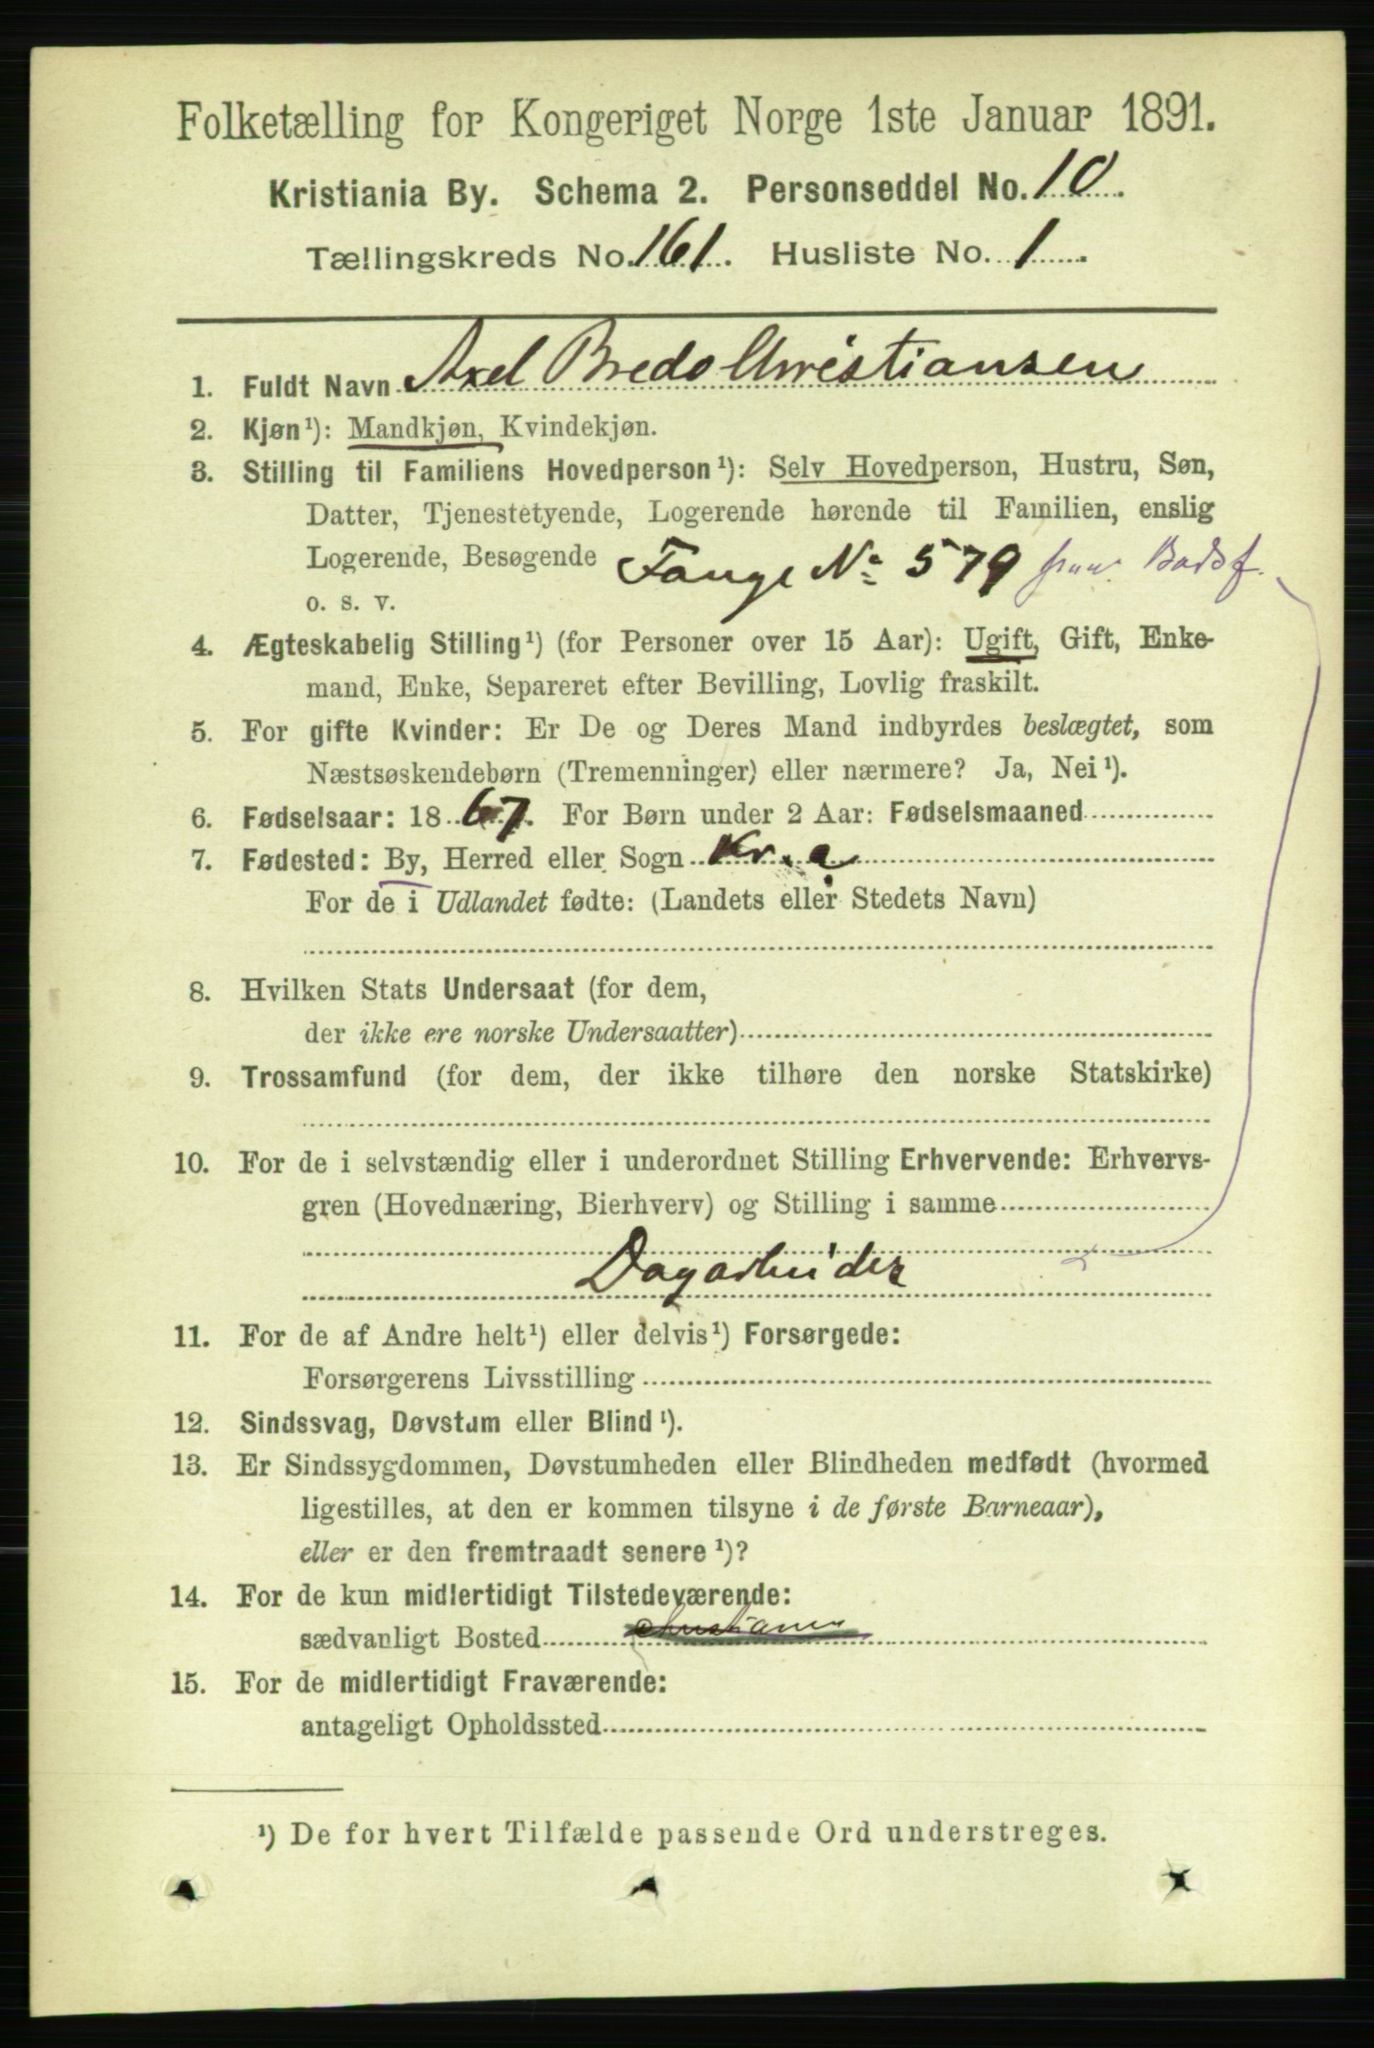 Folketælling for Kongeriget Norge 1ste Januar 1891.
Kristiania By. Schema 2. Personseddel No. 10.
Tællingskreds No. 161. Husliste No. 1.
1. Fuldt Navn Axel Bredo Christiansen
2. Kjøn¹): Mandkjøn, Kvindekjøn.
3. Stilling til Familiens Hovedperson¹): Selv Hovedperson, Hustru, Søn,
Datter, Tjenestetyende, Logerende hørende til Familien, enslig
Logerende, Besøgende Fange No 579
o. s. v.
4. Ægteskabelig Stilling¹) (for Personer over 15 Aar): Ugift, Gift, Enke-
mand, Enke, Separeret efter Bevilling, Lovlig fraskilt.
5. For gifte Kvinder: Er De og Deres Mand indbyrdes beslægtet, som
Næstsøskendebørn (Tremenninger) eller nærmere? Ja, Nei¹).
6. Fødselsaar: 1867. For Børn under 2 Aar: Fødselsmaaned
7. Fødested: By, Herred eller Sogn Kr.a
For de i Udlandet fødte: (Landets eller Stedets Navn)
8. Hvilken Stats Undersaat (for dem,
der ikke ere norske Undersaatter)
9. Trossamfund (for dem, der ikke tilhøre den norske Statskirke)
10. For de i selvstændig eller i underordnet Stilling Erhvervende: Erhvervs-
gren (Hovednæring, Bierhverv) og Stilling i samme
Dagarbeider
11. For de af Andre helt¹) eller delvis¹) Forsørgede:
Forsørgerens Livsstilling
12. Sindssvag, Døvstum eller Blind¹).
13. Er Sindssygdommen, Døvstumheden eller Blindheden medfødt (hvormed
ligestilles, at den er kommen tilsyne i de første Barneaar),
eller er den fremtraadt senere¹)?
14. For de kun midlertidigt Tilstedeværende:
sædvanligt Bosted
15. For de midlertidigt Fraværende:
antageligt Opholdssted
¹) De for hvert Tilfælde passende Ord understreges.